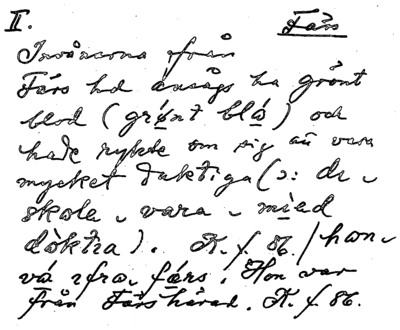 II. Färs
Invånarna från
Färs hd ansågs ha grönt
blod (grønt blå) och
hade rykte om sig att vara
mycket duktiga (ɔ: de
skole vara mied
döktra). K. f. 86. / hon
vá ifra färs. Hon var
från Färs härad. K. f. 86.